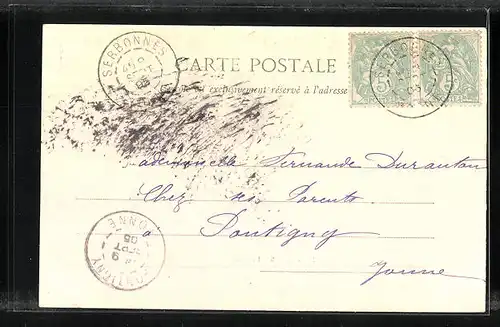 SERBONNES
CARTE POSTALE
exclusivement réservé à l'adresse
Mademoiselle Fernande Duranton
Chez ses Parents
à Pontigny
Yonne
PONTIGNY
YONNE
9
SEPT
05